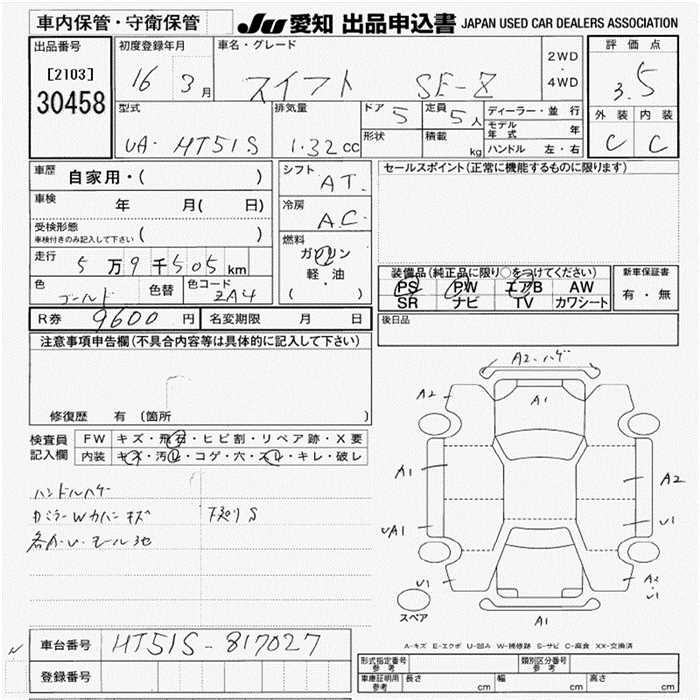 車内保管・守衛保管
JU 愛知 出品申込書 JAPAN USED CAR DEALERS ASSOCIATION
出品番号
[2103]
30458
初度登録年月
16 3月
車名・グレード
スイフト SE-Z
2WD
・
4WD
評価点
3.5
外装 内装
C C
型式
UA- HT51S
排気量
1.32cc
ドア 5
形状
定員 5人
積載 kg
ディーラー・並行
モデル年式 年
ハンドル 左・右
車歴 自家用・( )
車検 年 月( 日)
受検形態
車検付きのみ記入して下さい ( )
走行 5万9千505km
色 ゴールド 色替 色コード ZA4
シフト
AT
冷房
A.C
燃料
ガソリン
軽・油
( )
セールスポイント(正常に機能するものに限ります)
装備品(純正品に限り○をつけてください)
PS PW エアB AW
SR ナビ TV カワシート
新車保証書
有・無
R券 9600円 名変期限 月 日
後日品
注意事項申告欄(不具合内容等は具体的に記入して下さい)
修復歴 有 (箇所 )
検査員
記入欄
FW キズ・飛石・ヒビ割・リペア跡・X要
内装 キズ・汚レ・コゲ・穴・スレ・キレ・破レ
ハンドルハゲ
カミラーWカバーキズ 下廻りS
各A・U・モール他
A2・ハゲ
A2
A1
A1
A2
UA1
U1
U1
A2
U1
A1
スペア
A-キズ E-エクボ U-凹み W-補修跡 S-サビ C-腐食 XX-交換済
車台番号 HT51S-817027
登録番号
形式指定番号 参考
類別区分番号 参考
車庫証明用 参考 長さ cm 幅 cm 高さ cm